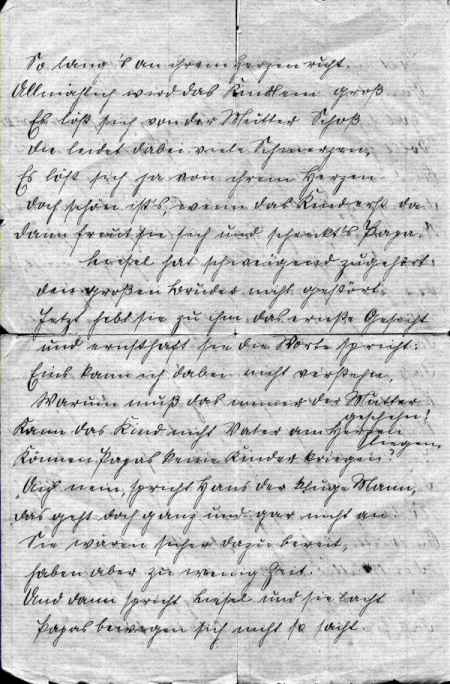 So lang's an ihrem Herzen ruht.
Allmählich wird das Kindlein groß
Es löst sich von der Mutter Schoß
die leidet dabei viele Schmerzen,
Es löst sich ja von ihrem Herzen
doch schön ist's, wenn das Kind erst da
dann freut sie sich und schenkt's Papa."
Liesel hat schweigend zugehört
den großen Bruder nicht gestört.
Jetzt hebt sie zu ihm das ernste Gesicht
und ernsthaft sie die Worte spricht:
Eins kann ich dabei nicht verstehn,
Warum muß das immer der Mutter
geschehn!
Kann das Kind nicht Vater am Herzen
liegen,
Können Papas keine Kinder kriegen?
"Ach nein, spricht Hans der kluge Mann,
das geht doch ganz und gar nicht an
Sie wären sicher dazu bereit,
haben aber zu wenig Zeit.
Und dann spricht Liesel und sie lacht
Papas bewegen sich nicht so sacht.